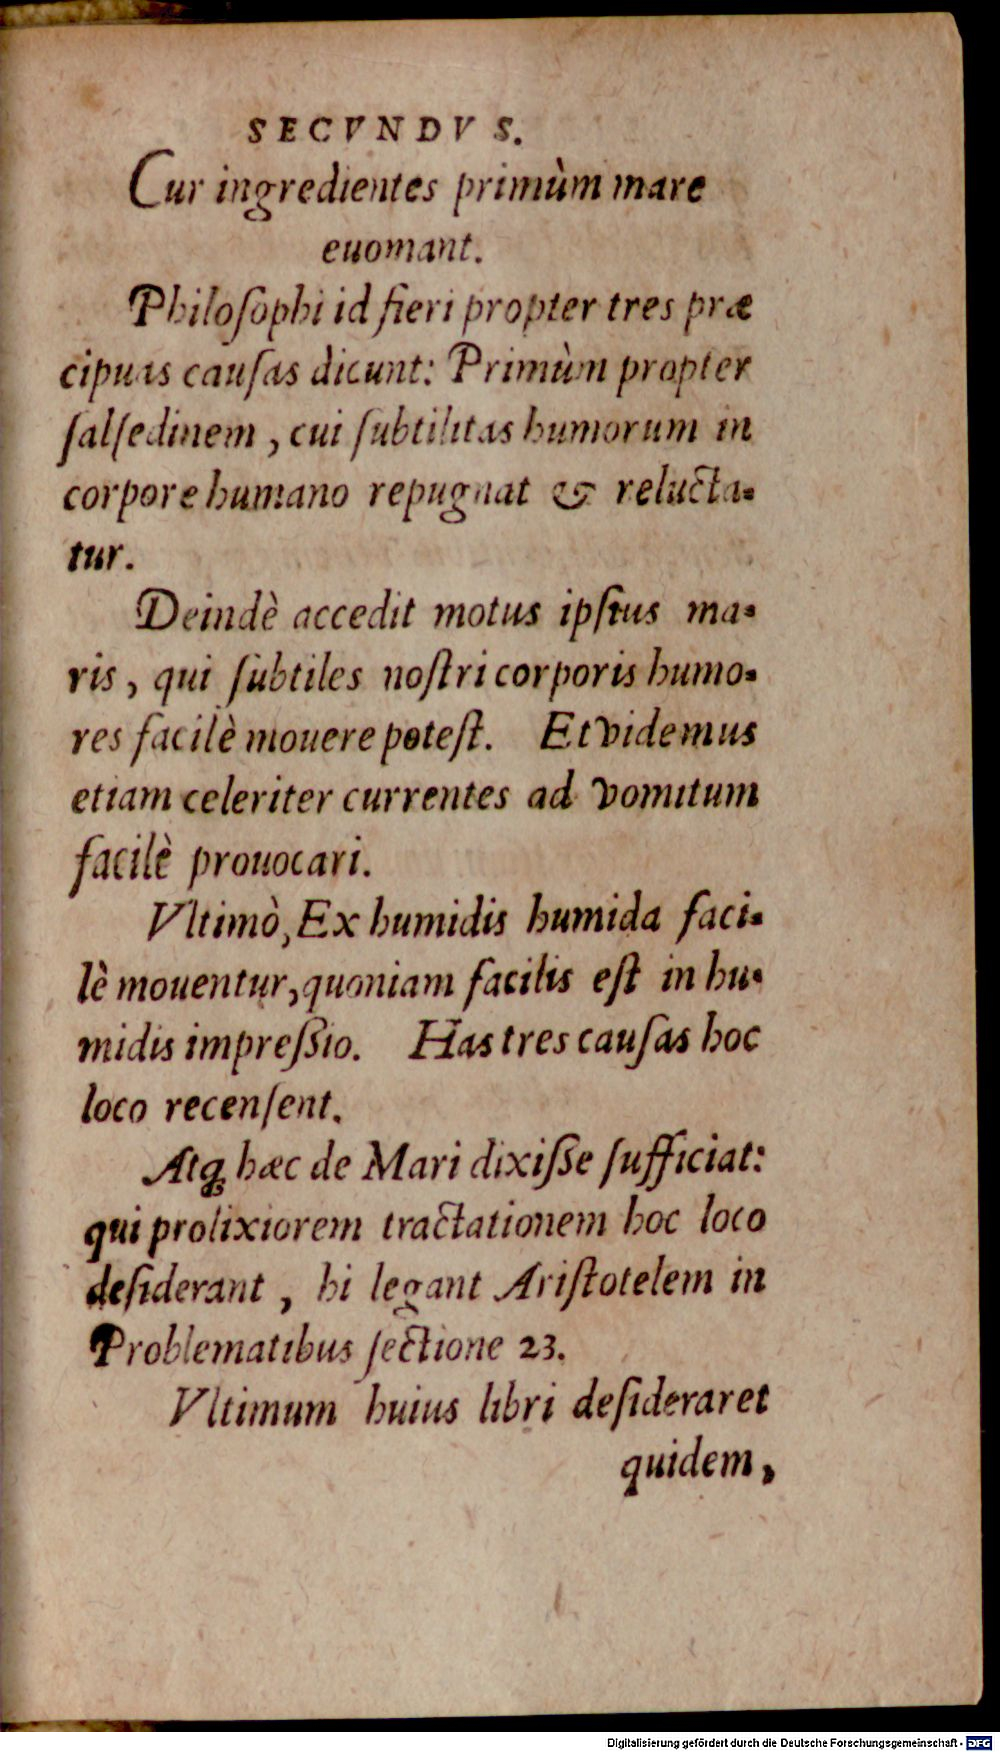 SECVNDVS.
Cur ingredientes primùm mare
euomant.
Philoſophi id fieri propter tres præ
cipuas cauſas dicunt: Primùm propter
ſalſedinem, cui ſubtilitas humorum in
corpore humano repugnat & relucta-
tur.
Deindè accedit motus ipſius ma-
ris, qui ſubtiles noſtri corporis humo-
res facilè mouere poteſt. Et videmus
etiam celeriter currentes ad vomitum
facilè prouocari.
Vltimò, Ex humidis humida faci-
lè mouentur, quoniam facilis eſt in hu-
midis impreſsio. Has tres cauſas hoc
loco recenſent.
Atq; hæc de Mari dixiſſe ſufficiat:
qui prolixiorem tractationem hoc loco
deſiderant, hi legant Ariſtotelem in
Problematibus ſectione 23.
Vltimum huius libri deſideraret
quidem,
Digitalisierung gefördert durch die Deutsche Forschungsgemeinschaft - DFG